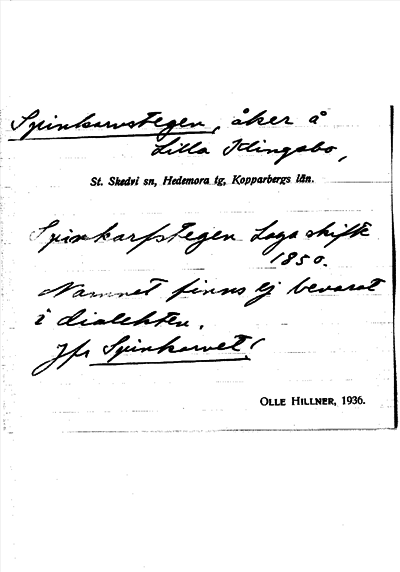 Spinkarvstegen, åker å
Lilla Klingsbo,
St. Skedvi sn, Hedemora tg, Kopparbergs län.
Spinkarfstegen Laga skifte
1850.
Namnet finns ej bevarat
i dialekten.
Jfr Spinkarvet!
OLLE HILLNER, 1936.